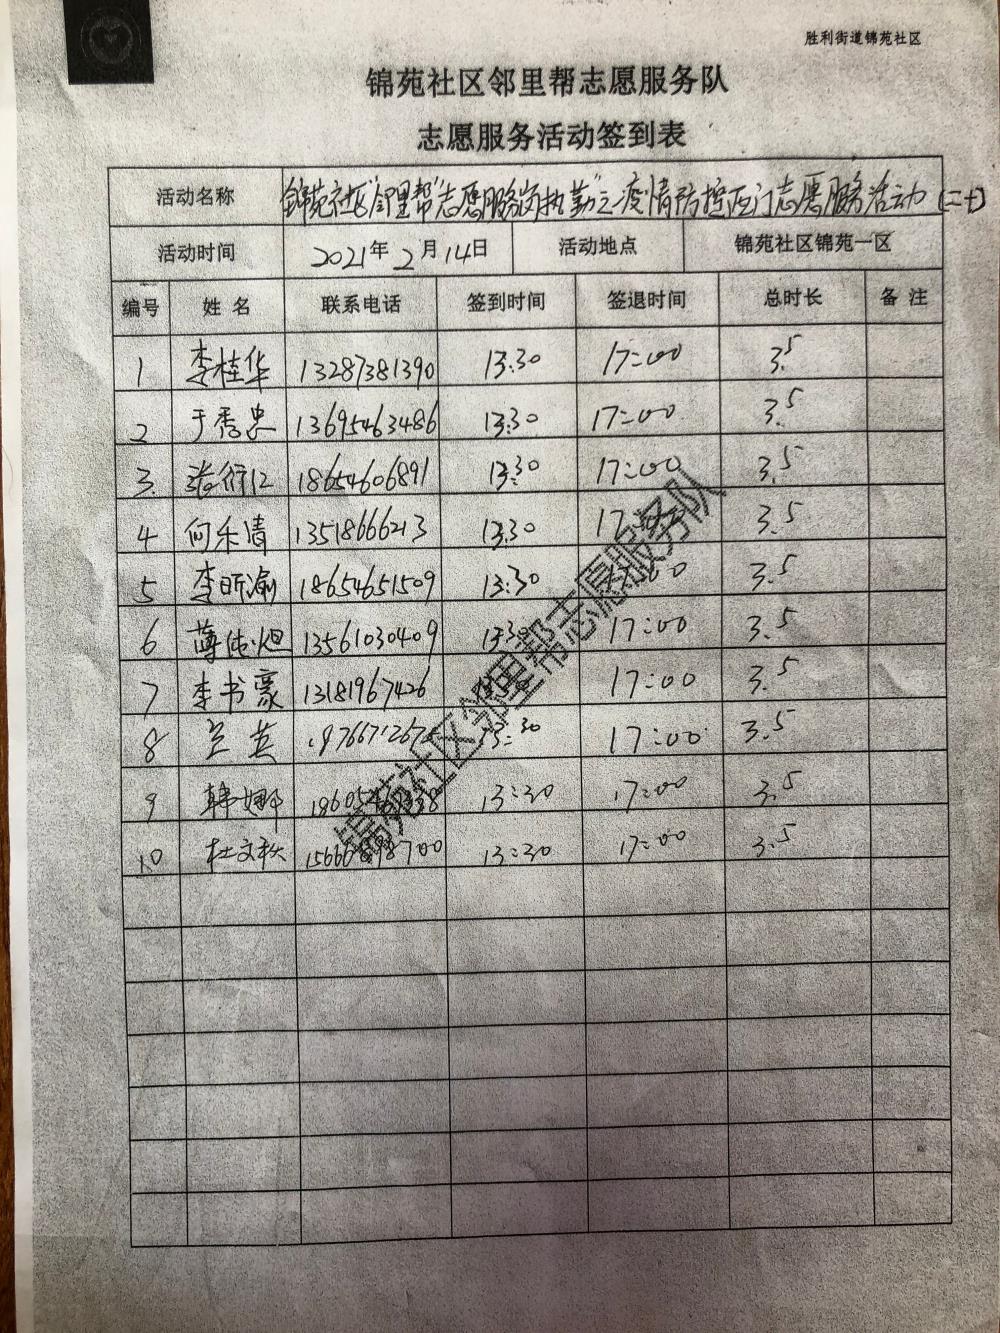 胜利街道锦苑社区
锦苑社区邻里帮志愿服务队
志愿服务活动签到表
活动名称 锦苑社区"邻里帮"志愿服务岗执勤"之疫情防控应门志愿服务活动(二十)
活动时间 2021年2月14日 活动地点 锦苑社区锦苑一区
编号 姓名 联系电话 签到时间 签退时间 总时长 备注
1 李桂华 13287381390 13:30 17:00 3.5
2 于秀忠 13695463486 13:30 17:00 3.5
3. 张衍江 18654606891 13:30 17:00 3.5
4 何乐清 13518666213 13:30 17 3.5
5 李昕渝 18654651509 13:30 3.5
6 薄 13561030409 13:30 17:00 3.5
7 李书豪 13181967426 17:00 3.5
8 兰英 13:30 17:00 3.5
9 韩娜 13:30 17:00 3.5
10 杜文秋 13:30 17:00 3.5
锦苑社区邻里帮志愿服务队